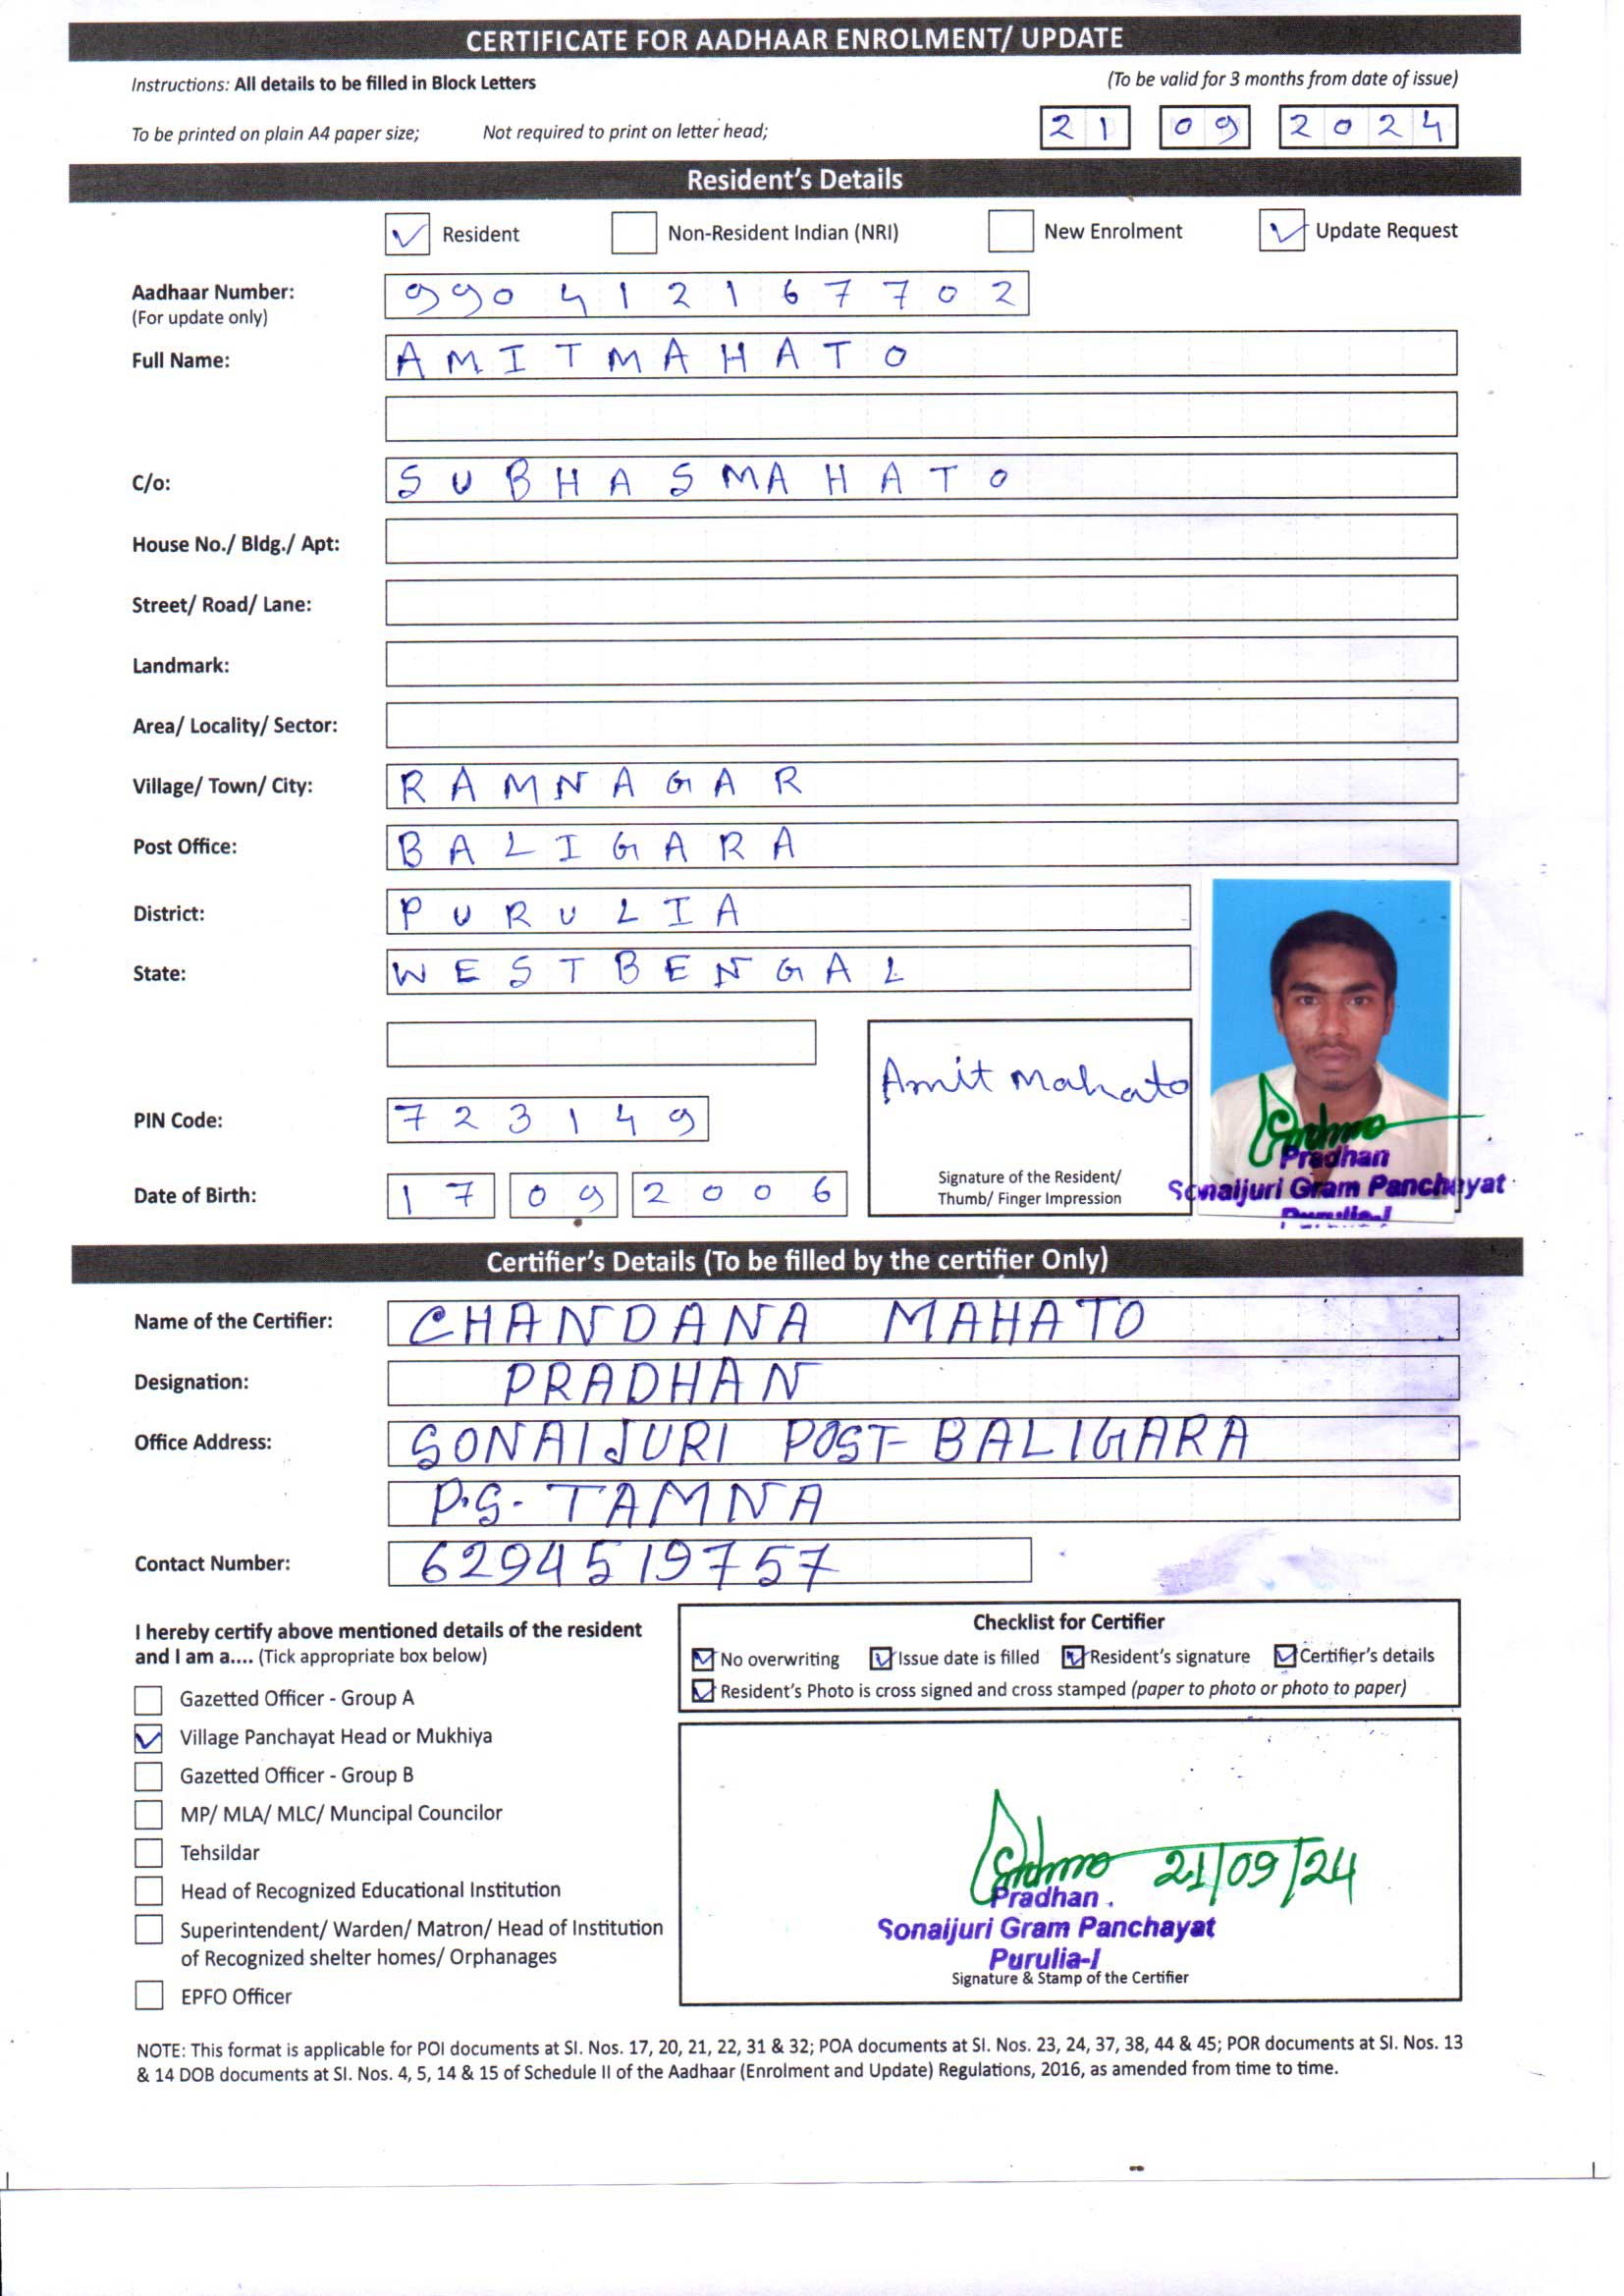 CERTIFICATE FOR AADHAAR ENROLMENT/ UPDATE
Instructions: All details to be filled in Block Letters
(To be valid for 3 months from date of issue)
To be printed on plain A4 paper size; Not required to print on letter head;
21 09 2024
Resident's Details
Resident Non-Resident Indian (NRI) New Enrolment Update Request
Aadhaar Number: 990412167702
(For update only)
Full Name: AMIT MAHATO
C/o: SUBHAS MAHATO
House No./ Bldg./ Apt:
Street/ Road/ Lane:
Landmark:
Area/ Locality/ Sector:
Village/ Town/ City: RAMNAGAR
Post Office: BALIGARA
District: PURULIA
State: WEST BENGAL
Amit Mahato
PIN Code: 723149
Date of Birth: 17 09 2006
Signature of the Resident/
Thumb/ Finger Impression
Pradhan
Sonaijuri Gram Panchayat
Purulia-I
Certifier's Details (To be filled by the certifier Only)
Name of the Certifier: CHANDANA MAHATO
Designation: PRADHAN
Office Address: SONAIJURI POST- BALIGARA
P.S- TAMNA
Contact Number: 6294519757
I hereby certify above mentioned details of the resident
and I am a.... (Tick appropriate box below)
Gazetted Officer - Group A
Village Panchayat Head or Mukhiya
Gazetted Officer - Group B
MP/ MLA/ MLC/ Muncipal Councilor
Tehsildar
Head of Recognized Educational Institution
Superintendent/ Warden/ Matron/ Head of Institution
of Recognized shelter homes/ Orphanages
EPFO Officer
Checklist for Certifier
No overwriting Issue date is filled Resident's signature Certifier's details
Resident's Photo is cross signed and cross stamped (paper to photo or photo to paper)
21/09/24
Pradhan
Sonaijuri Gram Panchayat
Purulia-I
Signature & Stamp of the Certifier
NOTE: This format is applicable for POI documents at SI. Nos. 17, 20, 21, 22, 31 & 32; POA documents at SI. Nos. 23, 24, 37, 38, 44 & 45; POR documents at SI. Nos. 13
& 14 DOB documents at SI. Nos. 4, 5, 14 & 15 of Schedule II of the Aadhaar (Enrolment and Update) Regulations, 2016, as amended from time to time.